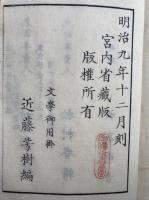 明治九年十二月刻
宮内省蔵版
版権所有
文學御用掛
近藤芳樹編